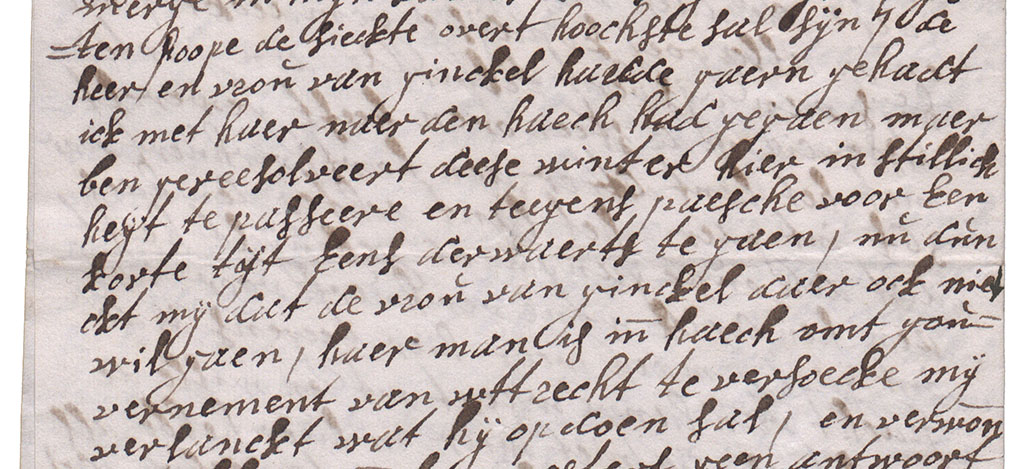 =ten hoope de sieckte overt hoochste sal sÿn, de
heer en vroŭ van ginckel hadde gaern gehadt
ick met haer naer den haech had gegaen maer
ben gereesolveert deese winter hier in stillich
heÿt te passeere en teegens paesche voor een
korte tÿt eens derwaerts te gaen, nŭ dŭn
ckt mÿ dat de vroŭ van ginckel daer ock niet
wil gaen, haer man is in haech omt goŭ=
vernement van wttrecht te versoecke mÿ
verlanckt wat hÿ opdoen sal, en verwon
geen antwoort